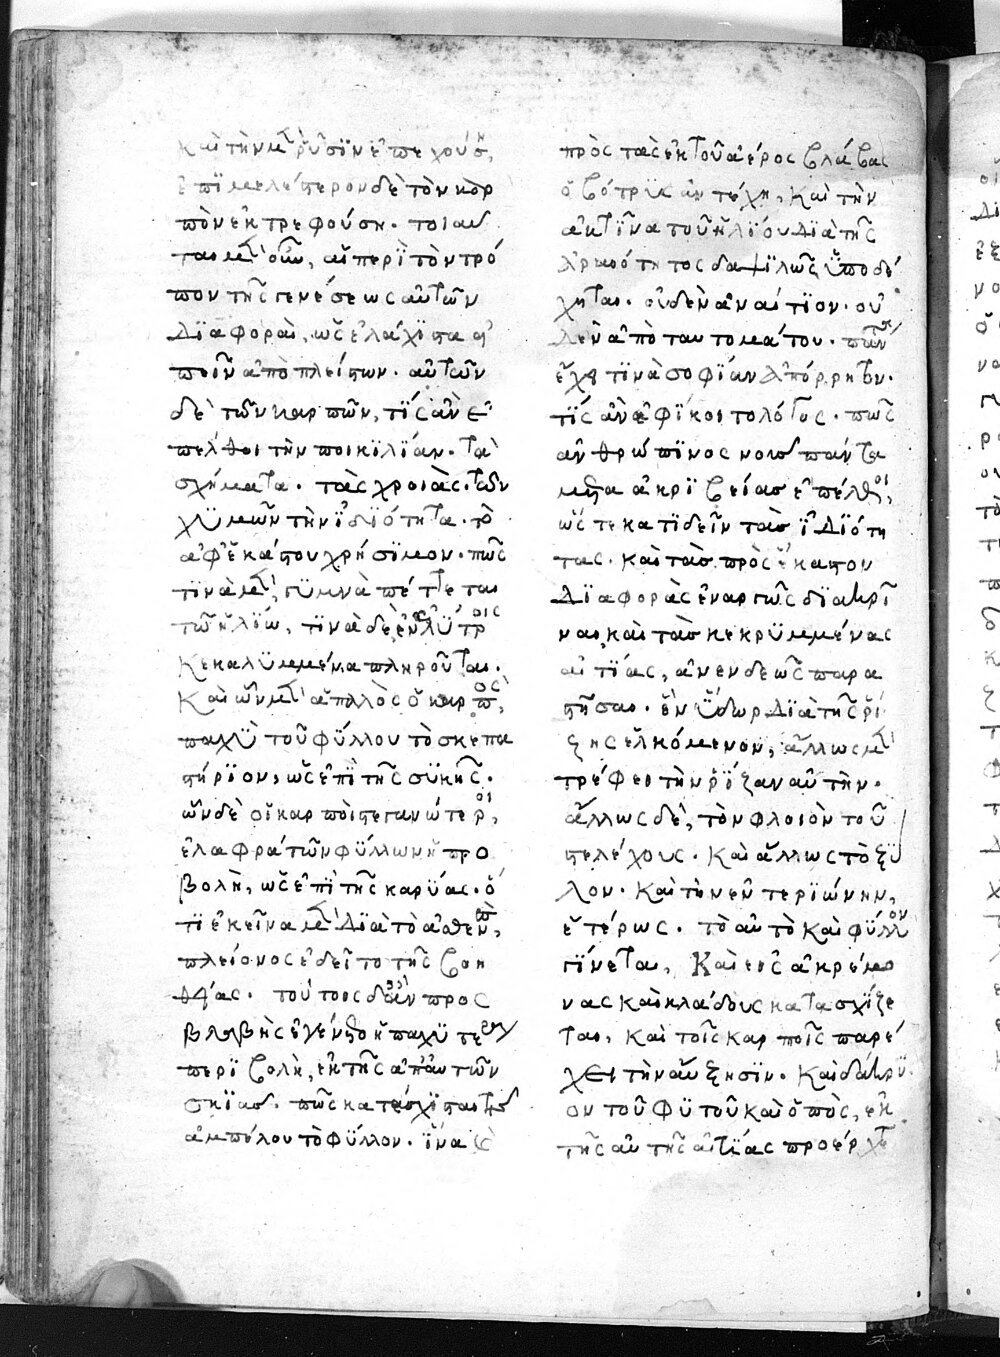 καὶ τὴν μὲν ῥύσϊν ἐπεχούση,
ἐπϊμελέστερον δὲ τὸν καρ
πὸν ἐκτρεφούση. τοιαῦ
ται μὲν οὖν, αἵ περὶ τὸν τρό
πον τῆς γενέσεως αὐτῶν
Δϊαφοραὶ, ὡς ἐλάχϊστα εἰ
πεῖν ἀπὸ πλείστων. αὐτῶν
δὲ τῶν καρπῶν, τίς ἂν ἐ
πέλθοι τὴν ποικϊλΐαν. τὰ
σχήματα. τὰς χροιὰς. τῶν
χϋμῶν τὴν ἰδϊότητα. τὸ
ἀφ' ἑκάστου χρήσϊμον. πῶς
τϊνὰ μὲν, γϋμνὰ πέττεται
τῶ ἡλΐω, τϊνὰ δὲ ἐν ἐλύτροις
κεκαλϋμμένα πληροῦται.
Καὶ ὧν μὲν ἁπαλὸς ὁ καρπὸς,
παχὺ τοῦ φύλλου τὸ σκεπα
στήρϊον, ὡς ἐπὶ τῆς συκῆς.
ὧν δὲ οἱ καρποὶ στεγανώτεροι,
ἐλαφρὰ τῶν φύλλων ἡ προ
βολὴ, ὡς ἐπὶ τῆς καρΰας. ὅ
τϊ ἐκεῖνα μὲν Διὰ τὸ ἀσθενὲς,
πλείονος ἐδεῖτο τῆς βοη
θείας. τούτοις δ' ἂν πρὸς
βλάβης ἐγένετο ἡ παχϋτέρα
περϊβολὴ, ἐκ τῆς ἀπ' αὐτῶν
σκϊᾶς. πῶς κατέσχϊσται τῆς
ἀμπέλου τὸ φύλλον. ἵνα καὶ
πρὸς τὰς ἐκ τοῦ ἀέρος βλάβας
ὁ βότρϋς ἀντέχη, καὶ τὴν
ἀκτῖνα τοῦ ἡλΐου Δϊὰ τῆς
ἀραιότητος δαψϊλῶς ὑποδέ
χηται. οὐδὲν ἀναίτϊον. οὐ
δὲν ἀπὸ ταυτομάτου. πάντα
ἔχει τϊνὰ σοφΐαν ἀπόρρητον.
τίς ἂν ἐφΐκοιτο λόγος. πῶς
ἀνθρώπϊνος νοῦς πάντα
μετὰ ἀκρϊβείας ἐπέλθοι,
ὥστε κατϊδεῖν τὰς ἰδϊότη
τας. καὶ τὰς πρὸς ἕκαστον
Δϊαφορὰς ἐναργῶς δϊακρῖ
ναι, καὶ τὰς κεκρϋμμένας
αἰτΐας, ἀνενδεῶς παρα
στῆσαι. ἓν ὕδωρ Διὰ τῆς ῥΐ
ζης ἑλκόμενον, ἄλλως μὲν
τρέφει τὴν ῥΐζαν αὐτὴν.
ἄλλως δὲ, τὸν φλοιὸν τοῦ
στελέχους. καὶ ἄλλως τὸ ξΰ
λον. καὶ τὴν ἐντερϊώνην,
ἑτέρως. τὸ αὐτὸ καὶ φύλλον
γΐνεται, καὶ εἰς ἀκρέμο
νας καὶ κλάδους κατασχΐζε
ται, καὶ τοῖς καρποῖς παρέ
χει τὴν αὔξησϊν. καὶ δάκρϋ
ον τοῦ φϋτοῦ καὶ ὀπὸς, ἐκ
τῆς αὐτῆς αἰτΐας προέρχεται